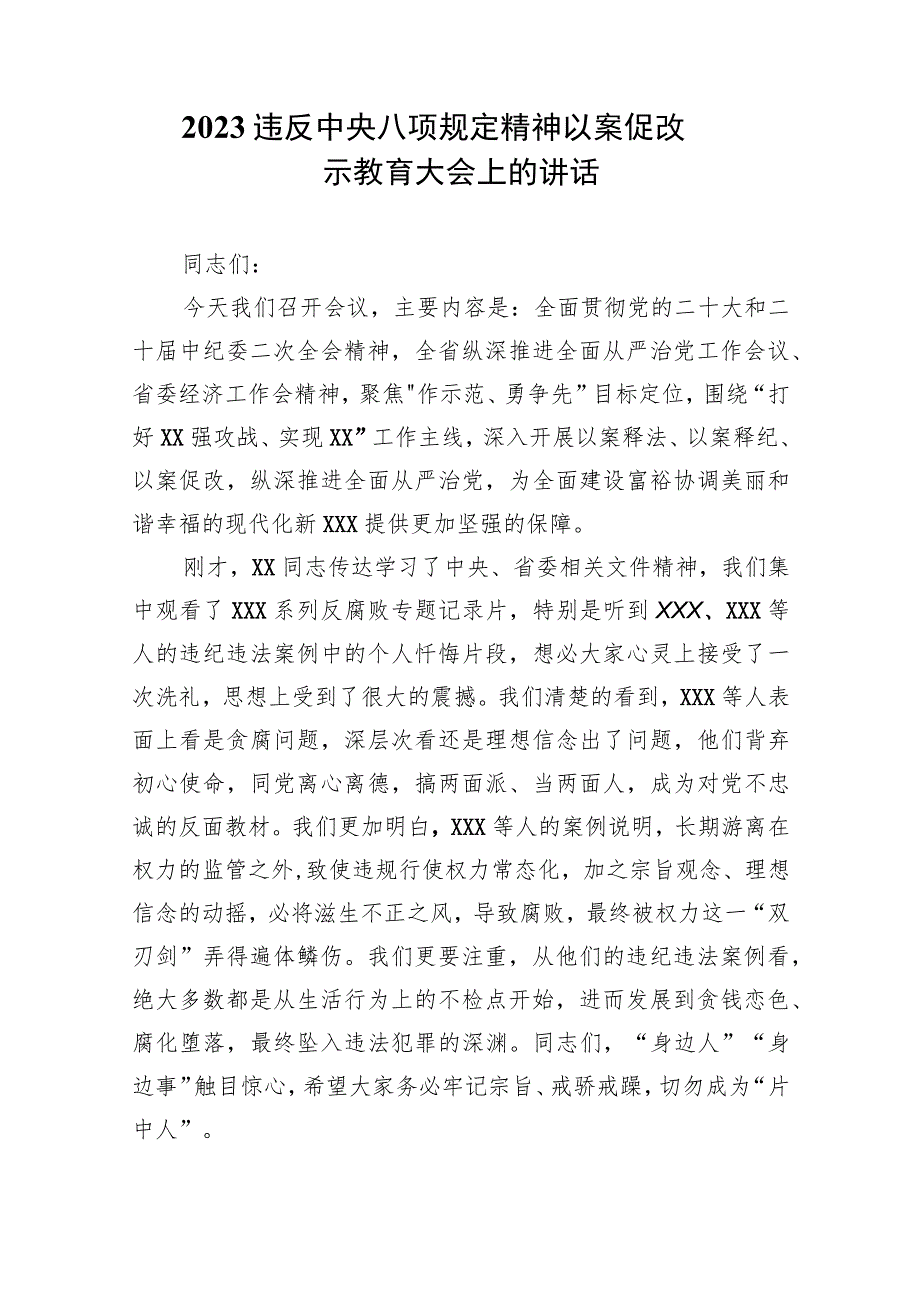 2023 违反中央八项规定精神以案促改
示教育大会上的讲话
同志们：
今天我们召开会议，主要内容是：全面贯彻党的二十大和二
十届中纪委二次全会精神，全省纵深推进全面从严治党工作会议、
省委经济工作会精神，聚焦"作示范、勇争先”目标定位，围绕“打
好 XX 强攻战、实现 XX”工作主线，深入开展以案释法、以案释纪、
以案促改，纵深推进全面从严治党，为全面建设富裕协调美丽和
谐幸福的现代化新 XXX 提供更加坚强的保障。
刚才，XX 同志传达学习了中央、省委相关文件精神，我们集
中观看了 XXX 系列反腐败专题记录片，特别是听到 XXX、XXX 等
人的违纪违法案例中的个人忏悔片段，想必大家心灵上接受了一
次洗礼，思想上受到了很大的震撼。我们清楚的看到，XXX 等人表
面上看是贪腐问题，深层次看还是理想信念出了问题，他们背弃
初心使命，同党离心离德，搞两面派、当两面人，成为对党不忠
诚的反面教材。我们更加明白，XXX 等人的案例说明，长期游离在
权力的监管之外,致使违规行使权力常态化，加之宗旨观念、理想
信念的动摇，必将滋生不正之风，导致腐败，最终被权力这一“双
刃剑”弄得遍体鳞伤。我们更要注重，从他们的违纪违法案例看，
绝大多数都是从生活行为上的不检点开始，进而发展到贪钱恋色、
腐化堕落，最终坠入违法犯罪的深渊。同志们，“身边人”“身
边事”触目惊心，希望大家务必牢记宗旨、戒骄戒躁，切勿成为“片
中人”。